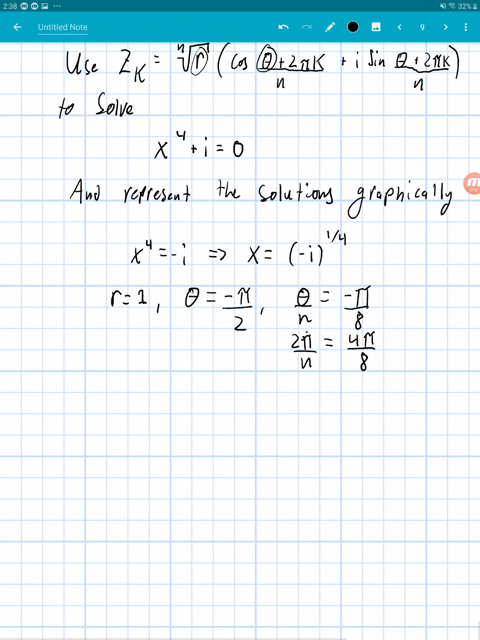 2:38
32%
Untitled Note
9
Use Z_K = ⁿ√r ( cos (θ+2πK)/n + i sin (θ+2πK)/n )
to Solve
x⁴ + i = 0
And represent the solutions graphically
x⁴ = -i ⇒ x = (-i)^1/4
r=1, θ = -π/2, θ/n = -π/8
2π/n = 4π/8